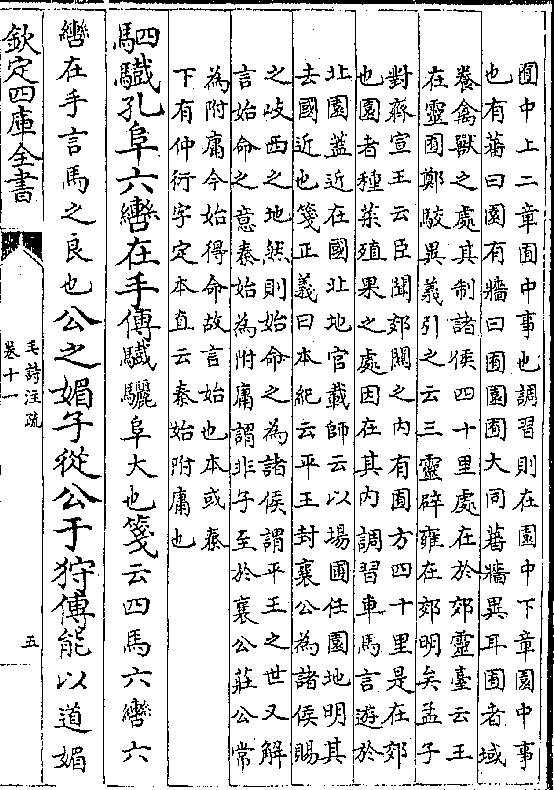 囿中上二章囿中事也調習則在園中下章園中事
也有蕃曰園有牆曰囿園囿大同蕃牆異耳囿者域
養禽獸之處其制諸侯四十里處在於郊靈臺云王
在靈囿鄭駮異義引之云三靈辟雍在郊明矣孟子
對齊宣王云臣聞郊關之内有囿方四十里是在郊
也園者種菜殖果之處因在其内調習車馬言遊於
北園蓋近在國北地官載師云以場圃任園地明其
去國近也箋正義曰本紀云平王封襄公為諸侯賜
之歧西之地然則始命之為諸侯謂平王之世又解
言始命之意秦始為附庸謂非子至於襄公莊公常
為附庸今始得命故言始也本或秦
下有仲衍字定本直云秦始附庸也
駟驖孔阜六轡在手傳驖驪阜大也箋云四馬六轡六
轡在手言馬之良也公之媚子從公于狩傳能以道媚
欽定四庫全書
毛詩注疏
卷十一
五